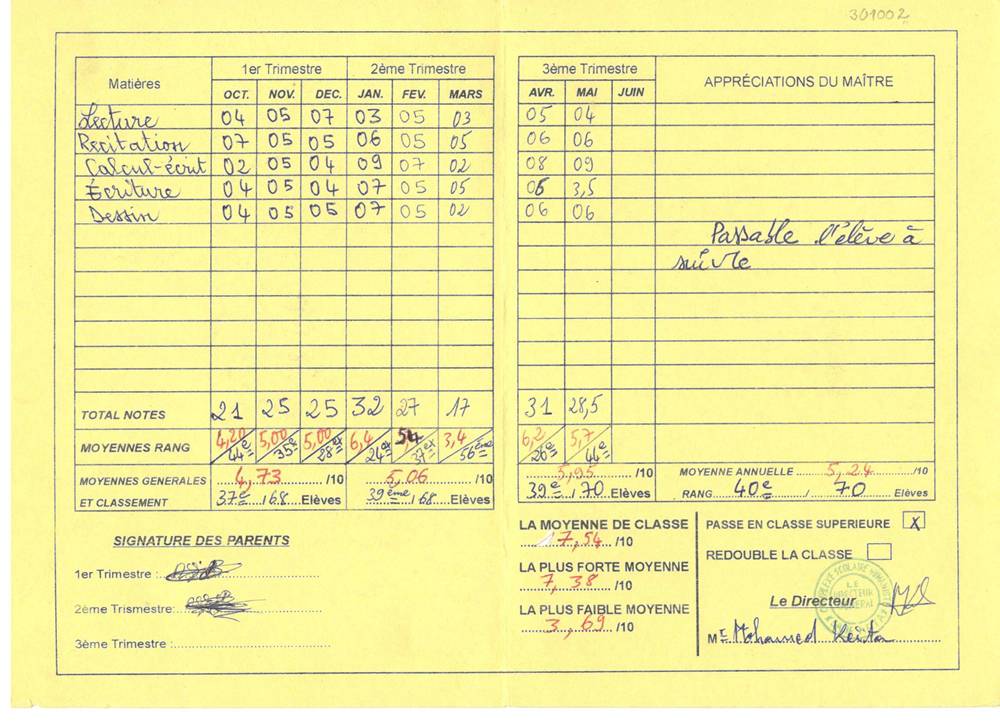 301002
1er Trimestre 2ème Trimestre 3ème Trimestre
Matières APPRÉCIATIONS DU MAÎTRE
OCT. NOV. DEC. JAN. FEV. MARS AVR. MAI JUIN
Lecture 04 05 07 03 05 03 05 04
Recitation 07 05 05 06 05 05 06 06
Calcul-écrit 02 05 04 09 07 02 08 09
Écriture 04 05 04 07 05 05 06 3,5
Dessin 04 05 05 07 05 02 06 06
Passable l'élève à
suivre
TOTAL NOTES 21 25 25 32 27 17 31 28,5
MOYENNES RANG 4,20 44e 5,00 35e 5,00 28ex 6,4 24ex 5,4 37ex 3,4 56ème 6,2 26e 5,7 44e
MOYENNES GENERALES 4,73 /10 5,06 /10 5,95 /10 MOYENNE ANNUELLE 5,24 /10
ET CLASSEMENT 37e /68 Elèves 39ème /68 Elèves 39e / 70 Elèves RANG 40e / 70 Elèves
SIGNATURE DES PARENTS
1er Trimestre :
2ème Trismestre:
3ème Trimestre :
LA MOYENNE DE CLASSE
7,54 /10
LA PLUS FORTE MOYENNE
7,38 /10
LA PLUS FAIBLE MOYENNE
3,69 /10
PASSE EN CLASSE SUPERIEURE X
REDOUBLE LA CLASSE
COMPLEXE SCOLAIRE
LE
DIRECTEUR
GENERAL
Le Directeur
Mr Mohamed Keita